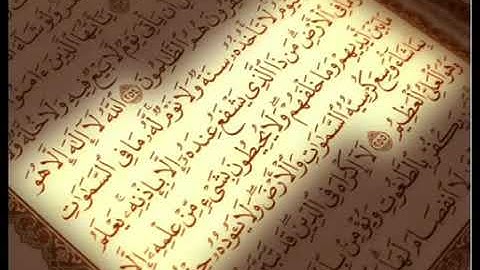 يَـٰٓأَيُّهَا ٱلَّذِينَ ءَامَنُوٓا۟
أَن يَأْتِىَ يَوْمٌ لَّا بَيْعٌ فِيهِ وَلَا خُلَّةٌ
هُمُ ٱلظَّـٰلِمُونَ ٢٥٤ ٱللَّهُ لَآ إِلَـٰهَ إِلَّا هُوَ
لَا تَأْخُذُهُۥ سِنَةٌ وَلَا نَوْمٌ لَّهُۥ مَا فِى ٱلسَّمَـٰوَٰتِ
ٱلْأَرْضِ مَن ذَا ٱلَّذِى يَشْفَعُ عِندَهُۥٓ إِلَّا بِإِذْنِهِۦ يَعْلَمُ
مَا بَيْنَ أَيْدِيهِمْ وَمَا خَلْفَهُمْ وَلَا يُحِيطُونَ بِشَىْءٍ مِّنْ عِلْمِهِۦٓ إِلَّا
بِمَا شَآءَ وَسِعَ كُرْسِيُّهُ ٱلسَّمَـٰوَٰتِ وَٱلْأَرْضَ وَلَا يَـُٔودُهُۥ
وَهُوَ ٱلْعَلِىُّ ٱلْعَظِيمُ ٢٥٥ لَآ إِكْرَاهَ فِى ٱلدِّينِ قَد تَّبَيَّنَ
يَكْفُرْ بِٱلطَّـٰغُوتِ وَيُؤْمِنۢ
لَا ٱنفِصَامَ لَهَا